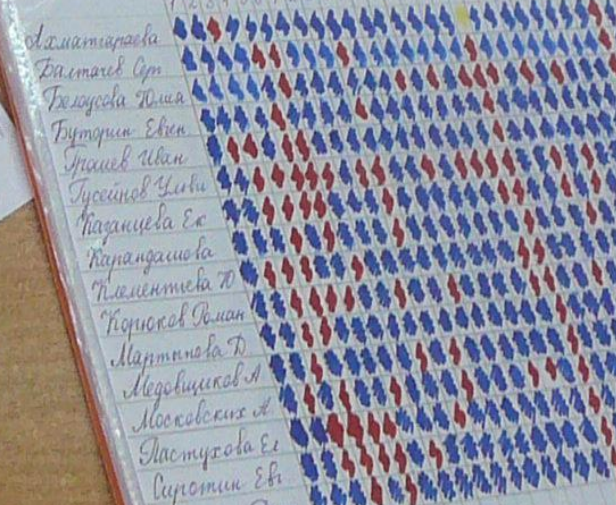 Ахматгараева
Балтачев Серг
Белоусова Юлия
Буторин Евген
Грашев Иван
Гусейнов
Казанцева Ек
Карандашова
Клементьева Ю
Корюков Роман
Мартынова Д
Медовщиков А
Московских А
Пастухова Ел
Сиротин Евг